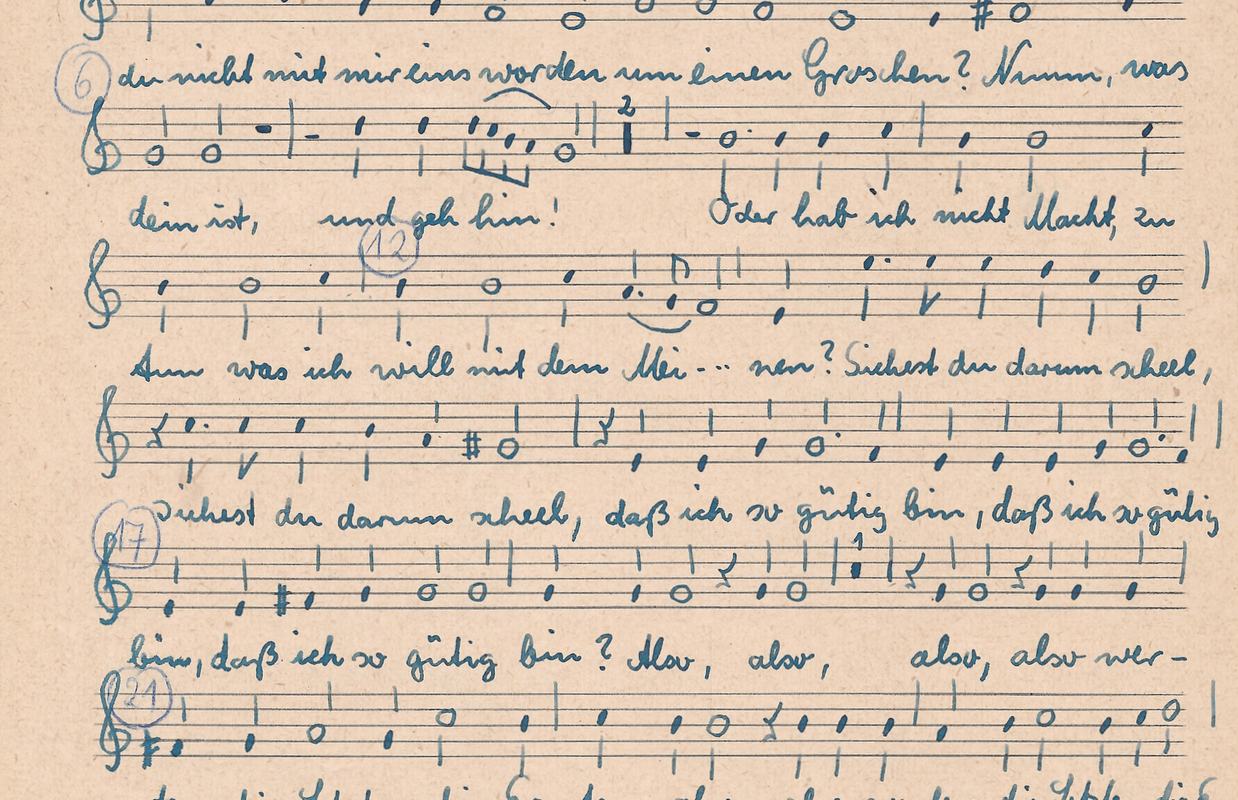 6 du nicht mit mir eins worden um einen Groschen? Nimm, was
2
dein ist, und geh hin! Oder hab ich nicht Macht, zu
12
tun was ich will mit dem Mei --- nen? Siehest du darum scheel,
Siehest du darum scheel, daß ich so gütig bin, daß ich so gütig
17
1
bin, daß ich so gütig bin? Also, also, also, also wer-
21